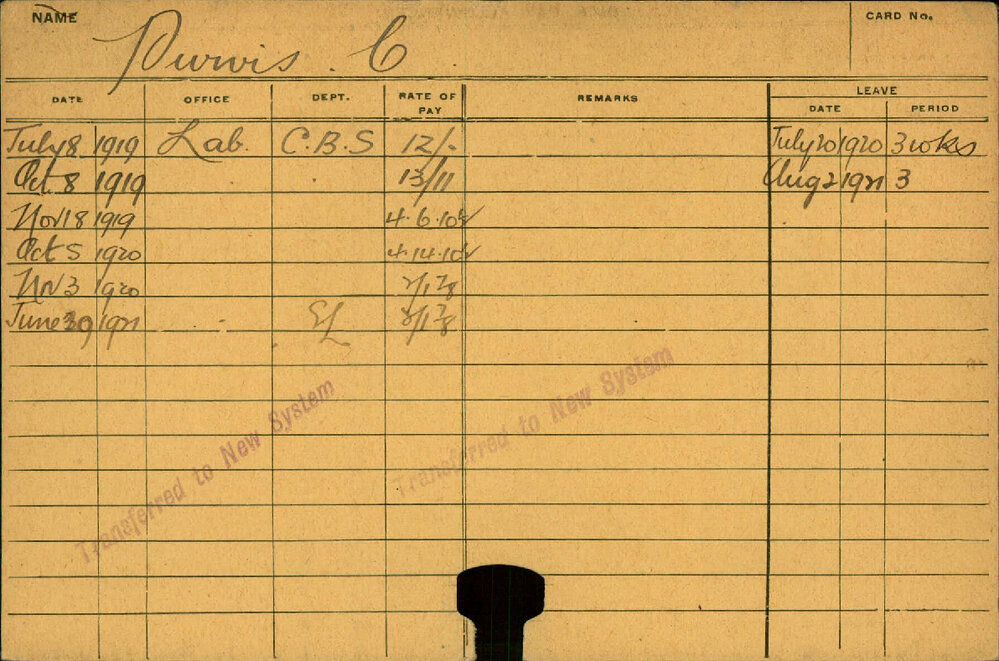 NAME
CARD No.
Purvis. C
DATE OFFICE DEPT. RATE OF PAY REMARKS LEAVE
DATE PERIOD
July 8 1919 Lab. C.B.S 12/- July 20 1920 3 wks
Oct. 8 1919 13/11 Aug 2 1921 3
Nov 18 1919 4.6.10
Oct 5 1920 4.14.10
Nov 3 1920 2/1 7/8
June 30 1921 2/1 7/8
Transferred to New System
Transferred to New System